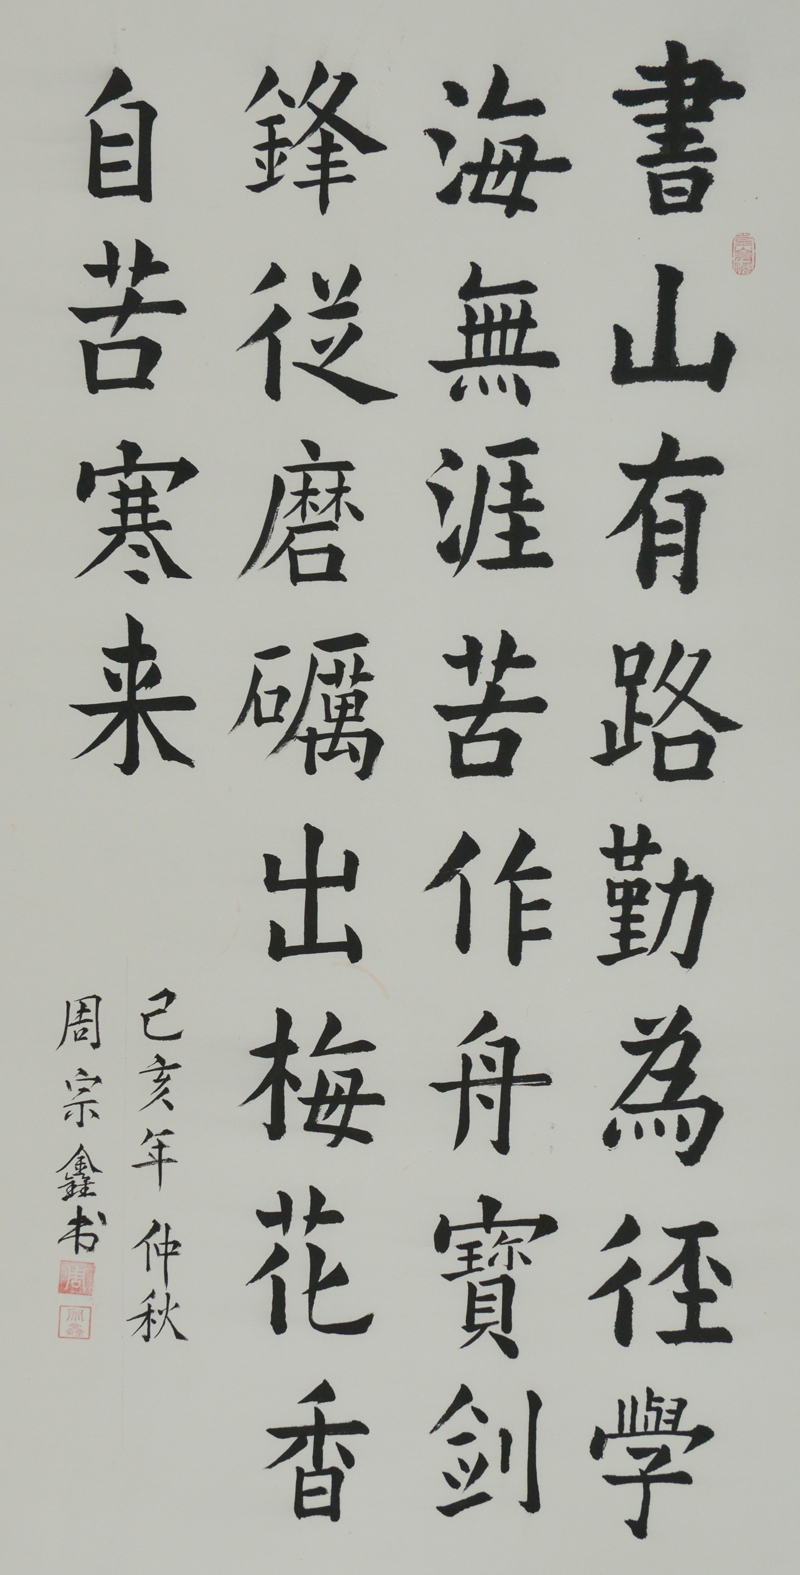 書山有路勤為径學
海無涯苦作舟寳剑
鋒從磨礪出梅花香
自苦寒来
己亥年仲秋
周宗鑫书
周